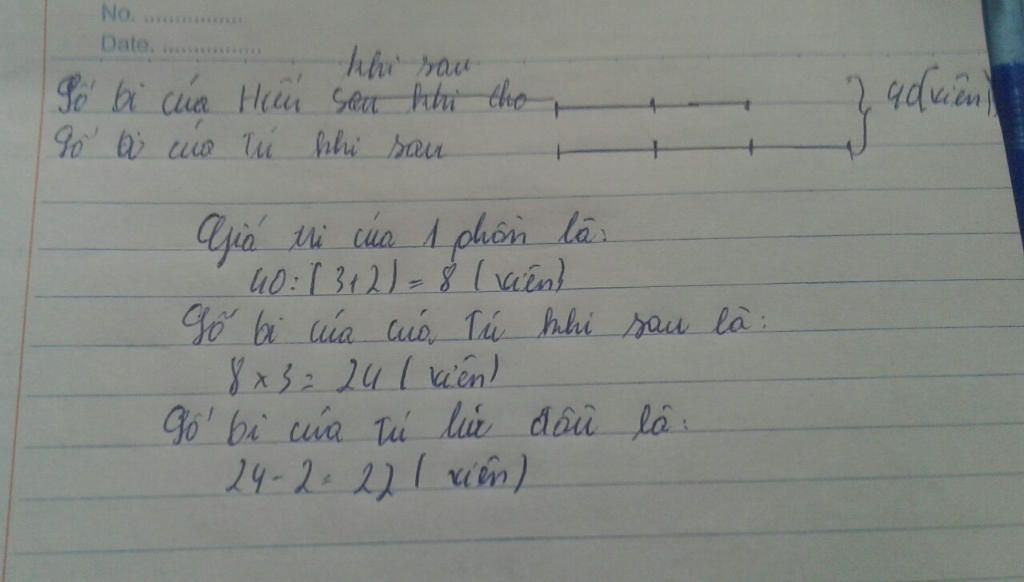 No. ................
Date. ................
khi sau
Số bi của Hiếu sau khi cho 40(viên)
Số bi của Tú khi sau
Giá trị của 1 phần là:
40:(3+2)=8 (viên)
Số bi của của Tú khi sau là:
8×3=24 (viên)
Số bi của Tú lúc đầu là:
24-2=22 (viên)